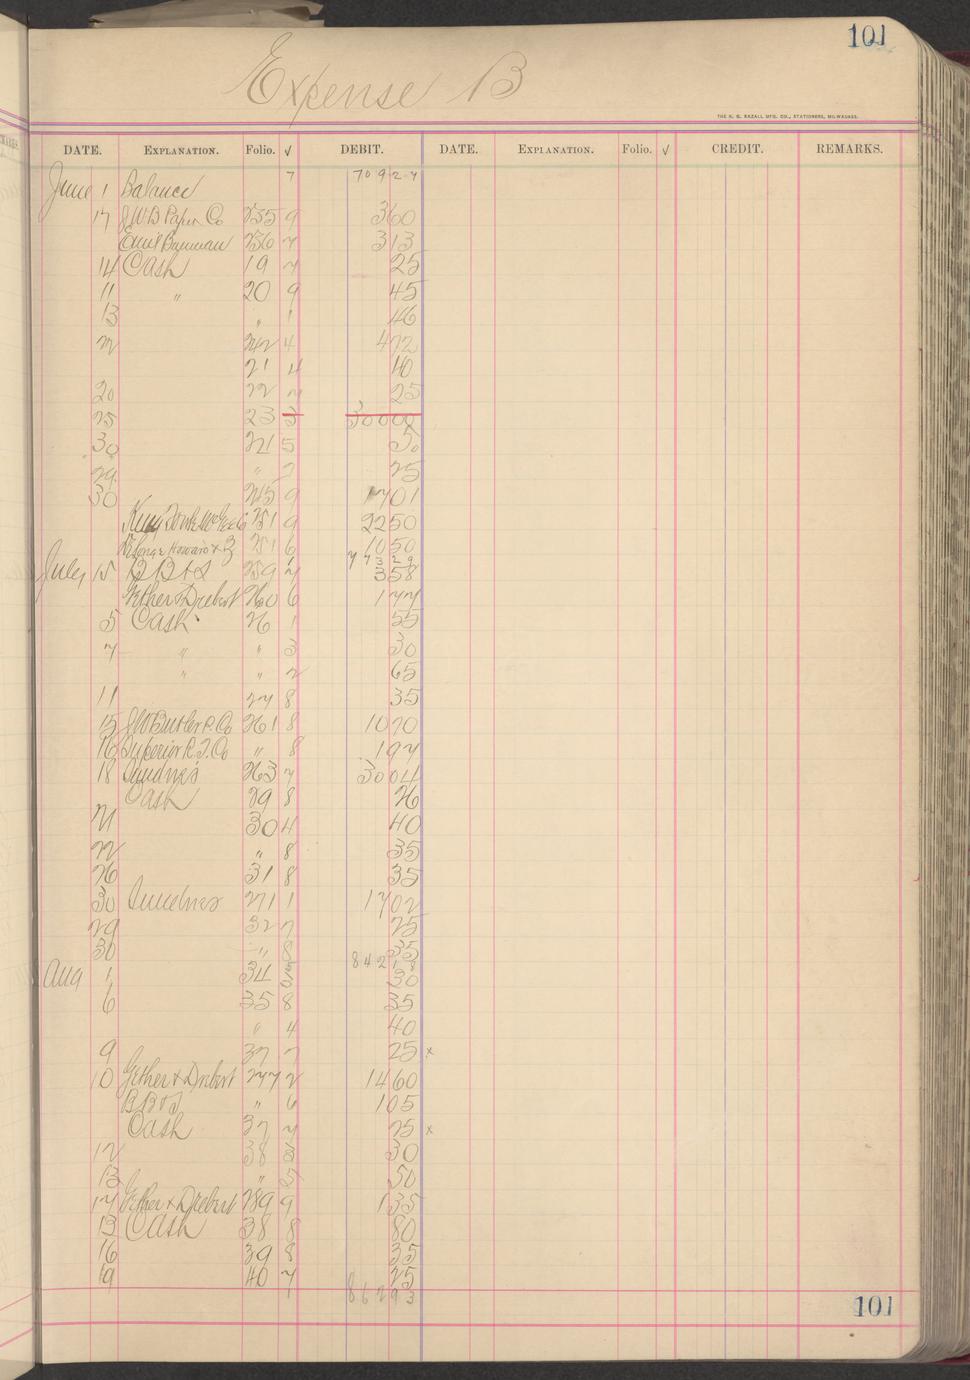 101
Expense B
THE H. G. RAZALL MFG. CO., STATIONERS, MILWAUKEE.
DATE. EXPLANATION. Folio. √ DEBIT. DATE. EXPLANATION. Folio. √ CREDIT. REMARKS.
June 1 Balance 7 70927
17 J W B Paper Co 235 9 360
Emil Bauman 236 7 313
14 Cash 19 7 25
11 " 20 9 45
13 " 1 46
22 242 4 472
21 4 40
20 22 7 25
25 23 3 30000
30 221 5 50
29 " 7 25
30 245 9 1701
251 9 2250
Howard & 251 6 1050
77329
July 15 B B & S 259 7 358
Gether & Drebert 260 6 177
5 Cash 26 1 55
7 " " 3 30
" " 2 65
11 27 8 35
15 J W Butler P. Co 261 8 1070
16 Superior R. T. Co " 8 197
18 Sundries 263 7 3004
Cash 29 8 26
21 30 4 40
22 " 8 35
26 31 8 35
30 Sundries 271 1 1702
29 32 7 25
30 " 8 35
84218
Aug 1 34 3 30
6 35 8 35
" 4 40
9 37 7 25 x
10 Gether & Drebert 277 2 1460
B B & S " 6 105
Cash 37 7 25 x
12 38 3 30
13 " 5 50
17 Gether & Drebert 289 9 135
13 Cash 38 8 80
16 39 8 35
19 40 7 25
86293
101